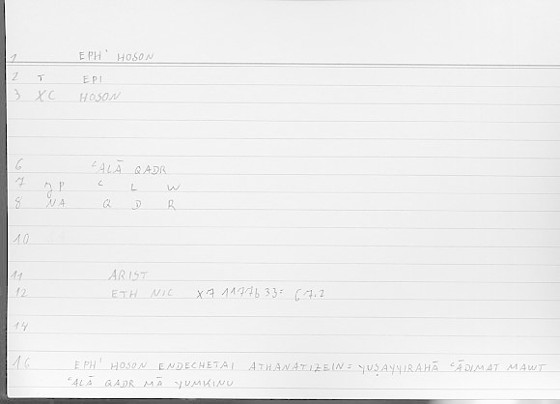 1 EPH' HOSON
2 T EPI
3 XC HOSON
6 ʿALĀ QADR
7 zP ʿ L W
8 NA Q D R
10
11 ARIST
12 ETH NIC X7 1177b33= 67.2
14
16 EPH' HOSON ENDECHETAI ATHANATIZEIN= YUṢAYYIRAHĀ ʿĀDIMAT MAWT
ʿALĀ QADR MĀ YUMKINU